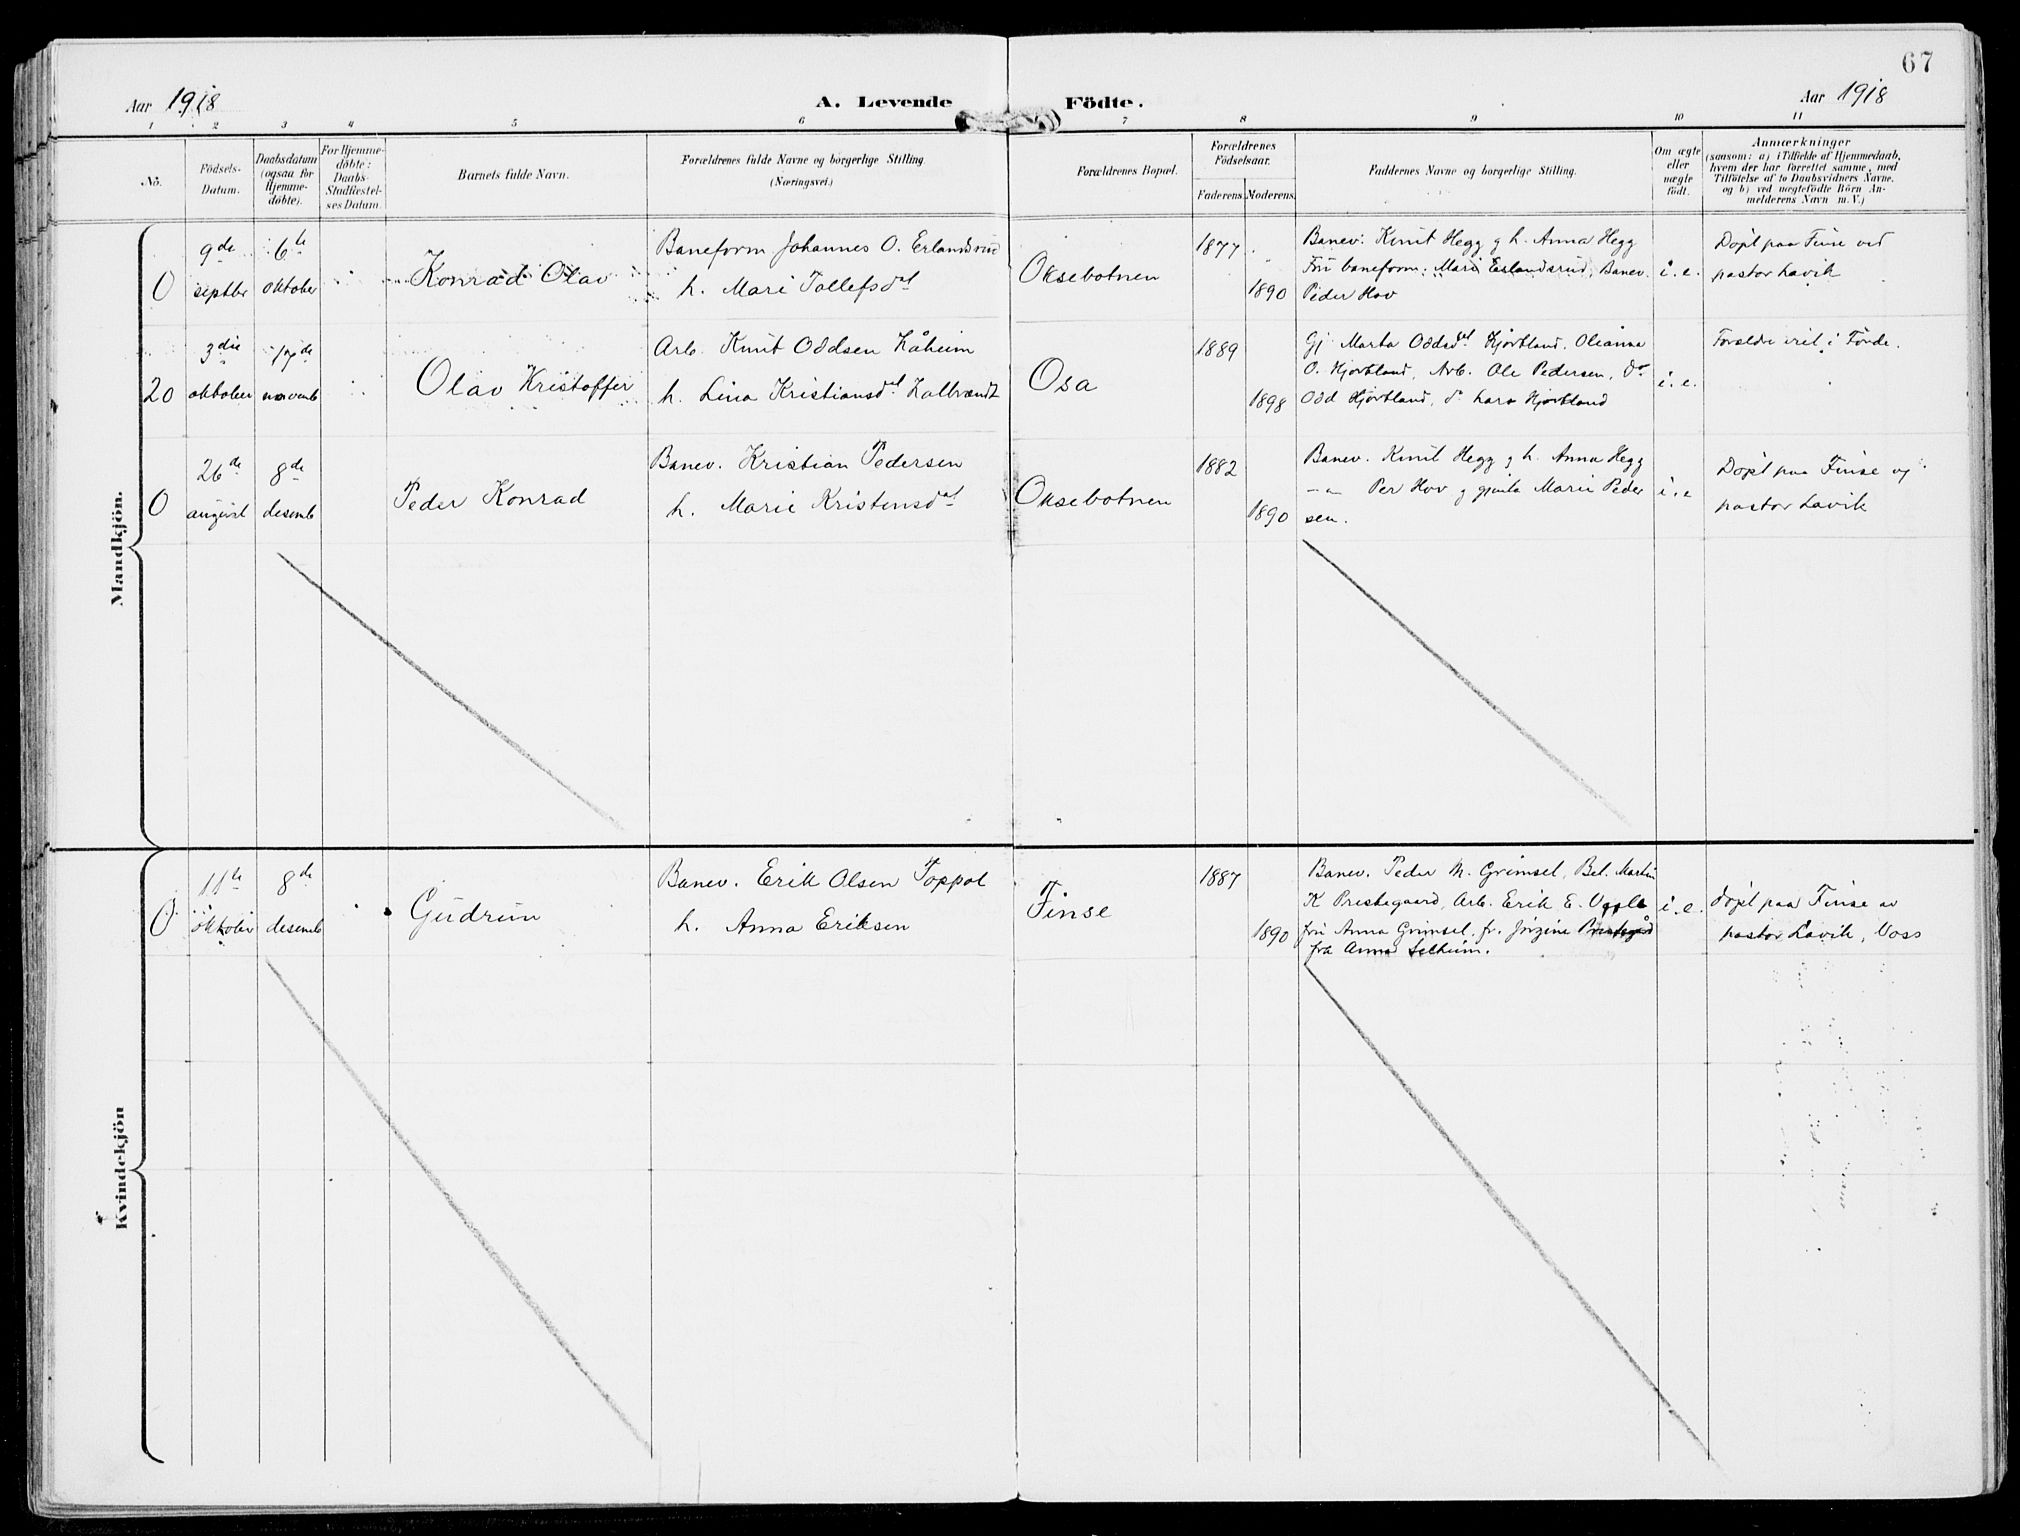 67
Aar 1918
A. Levende Födte.
Aar 1918
1 2 3 4 5 6 7 8 9 10 11
No.
Födsels-
Datum.
Daabsdatum
(ogsaa for
Hjemme-
döbte).
For Hjemme-
döbte:
Daabs-
Stadfæstel-
ses Datum.
Barnets fulde Navn.
Forældrenes fulde Navne og borgerlige Stilling.
(Næringsvei.)
Forældrenes Bopæl.
Forældrenes
Födselsaar.
Faderens.
Moderens.
Faddernes Navne og borgerlige Stilling.
Om ægte
eller
uægte
födt.
Anmærkninger
(saasom: a) i Tilfælde af Hjemmedaab,
hvem der har forrettet samme, med
Tilföielse af to Daabsvidners Navne,
og b) ved uægtefödte Börn An-
melderens Navn m. V.)
Mandkjön.
0
9de
septbr
6te
oktober
Konrad Olav
Baneform Johannes O. Erlandsrud
h. Mari Tollefsdat
Oksebotnen
1877
1890
Banev. Knut Hegg g h. Anna Hegg
Fru baneform. Mari Erlandsrud, Banev.
Peder Hov
i. e.
Döpt paa Finse ved
pastor Lavik
20
3die
oktober
17de
novemb
Olav Kristoffer
Arb. Knut Oddsen Håheim
h. Lina Kristiansdat Kalbrandt
Osa
1889
1898
Gj Marta Oddsdat Hjörtland, Olianna
O. Hjortland, Arb. Ole Pedersen, do
Odd Hjörtland, do Lars Hjörtland
i. e.
Foreldre viet i Förde.
0
26de
august
8de
desemb
Peder Konrad
Banev. Kristian Pedersen
h. Marie Kristensdat
Oksebotnen
1882
1890
Banev. Knut Hegg g h. Anna Hegg
— " — Per Hov g gjenta Marie Peder
sen.
i. e
Döpt paa Finse av
pastor Lavik
Kvindekjön
0
11te
oktober
8de
desemb
Gudrun
Banev. Erik Olsen Toppol
h. Anna Eriksen
Finse
1887
1890
Banev. Peder M. Grimsel, Bet. Martin
K Prestegaard, Arb. Erik E.
fru Anna Grimsel, fr. Jörgine
frk Anna Selheim.
i. e.
döpt paa Finse av
pastor Lavik, Voss